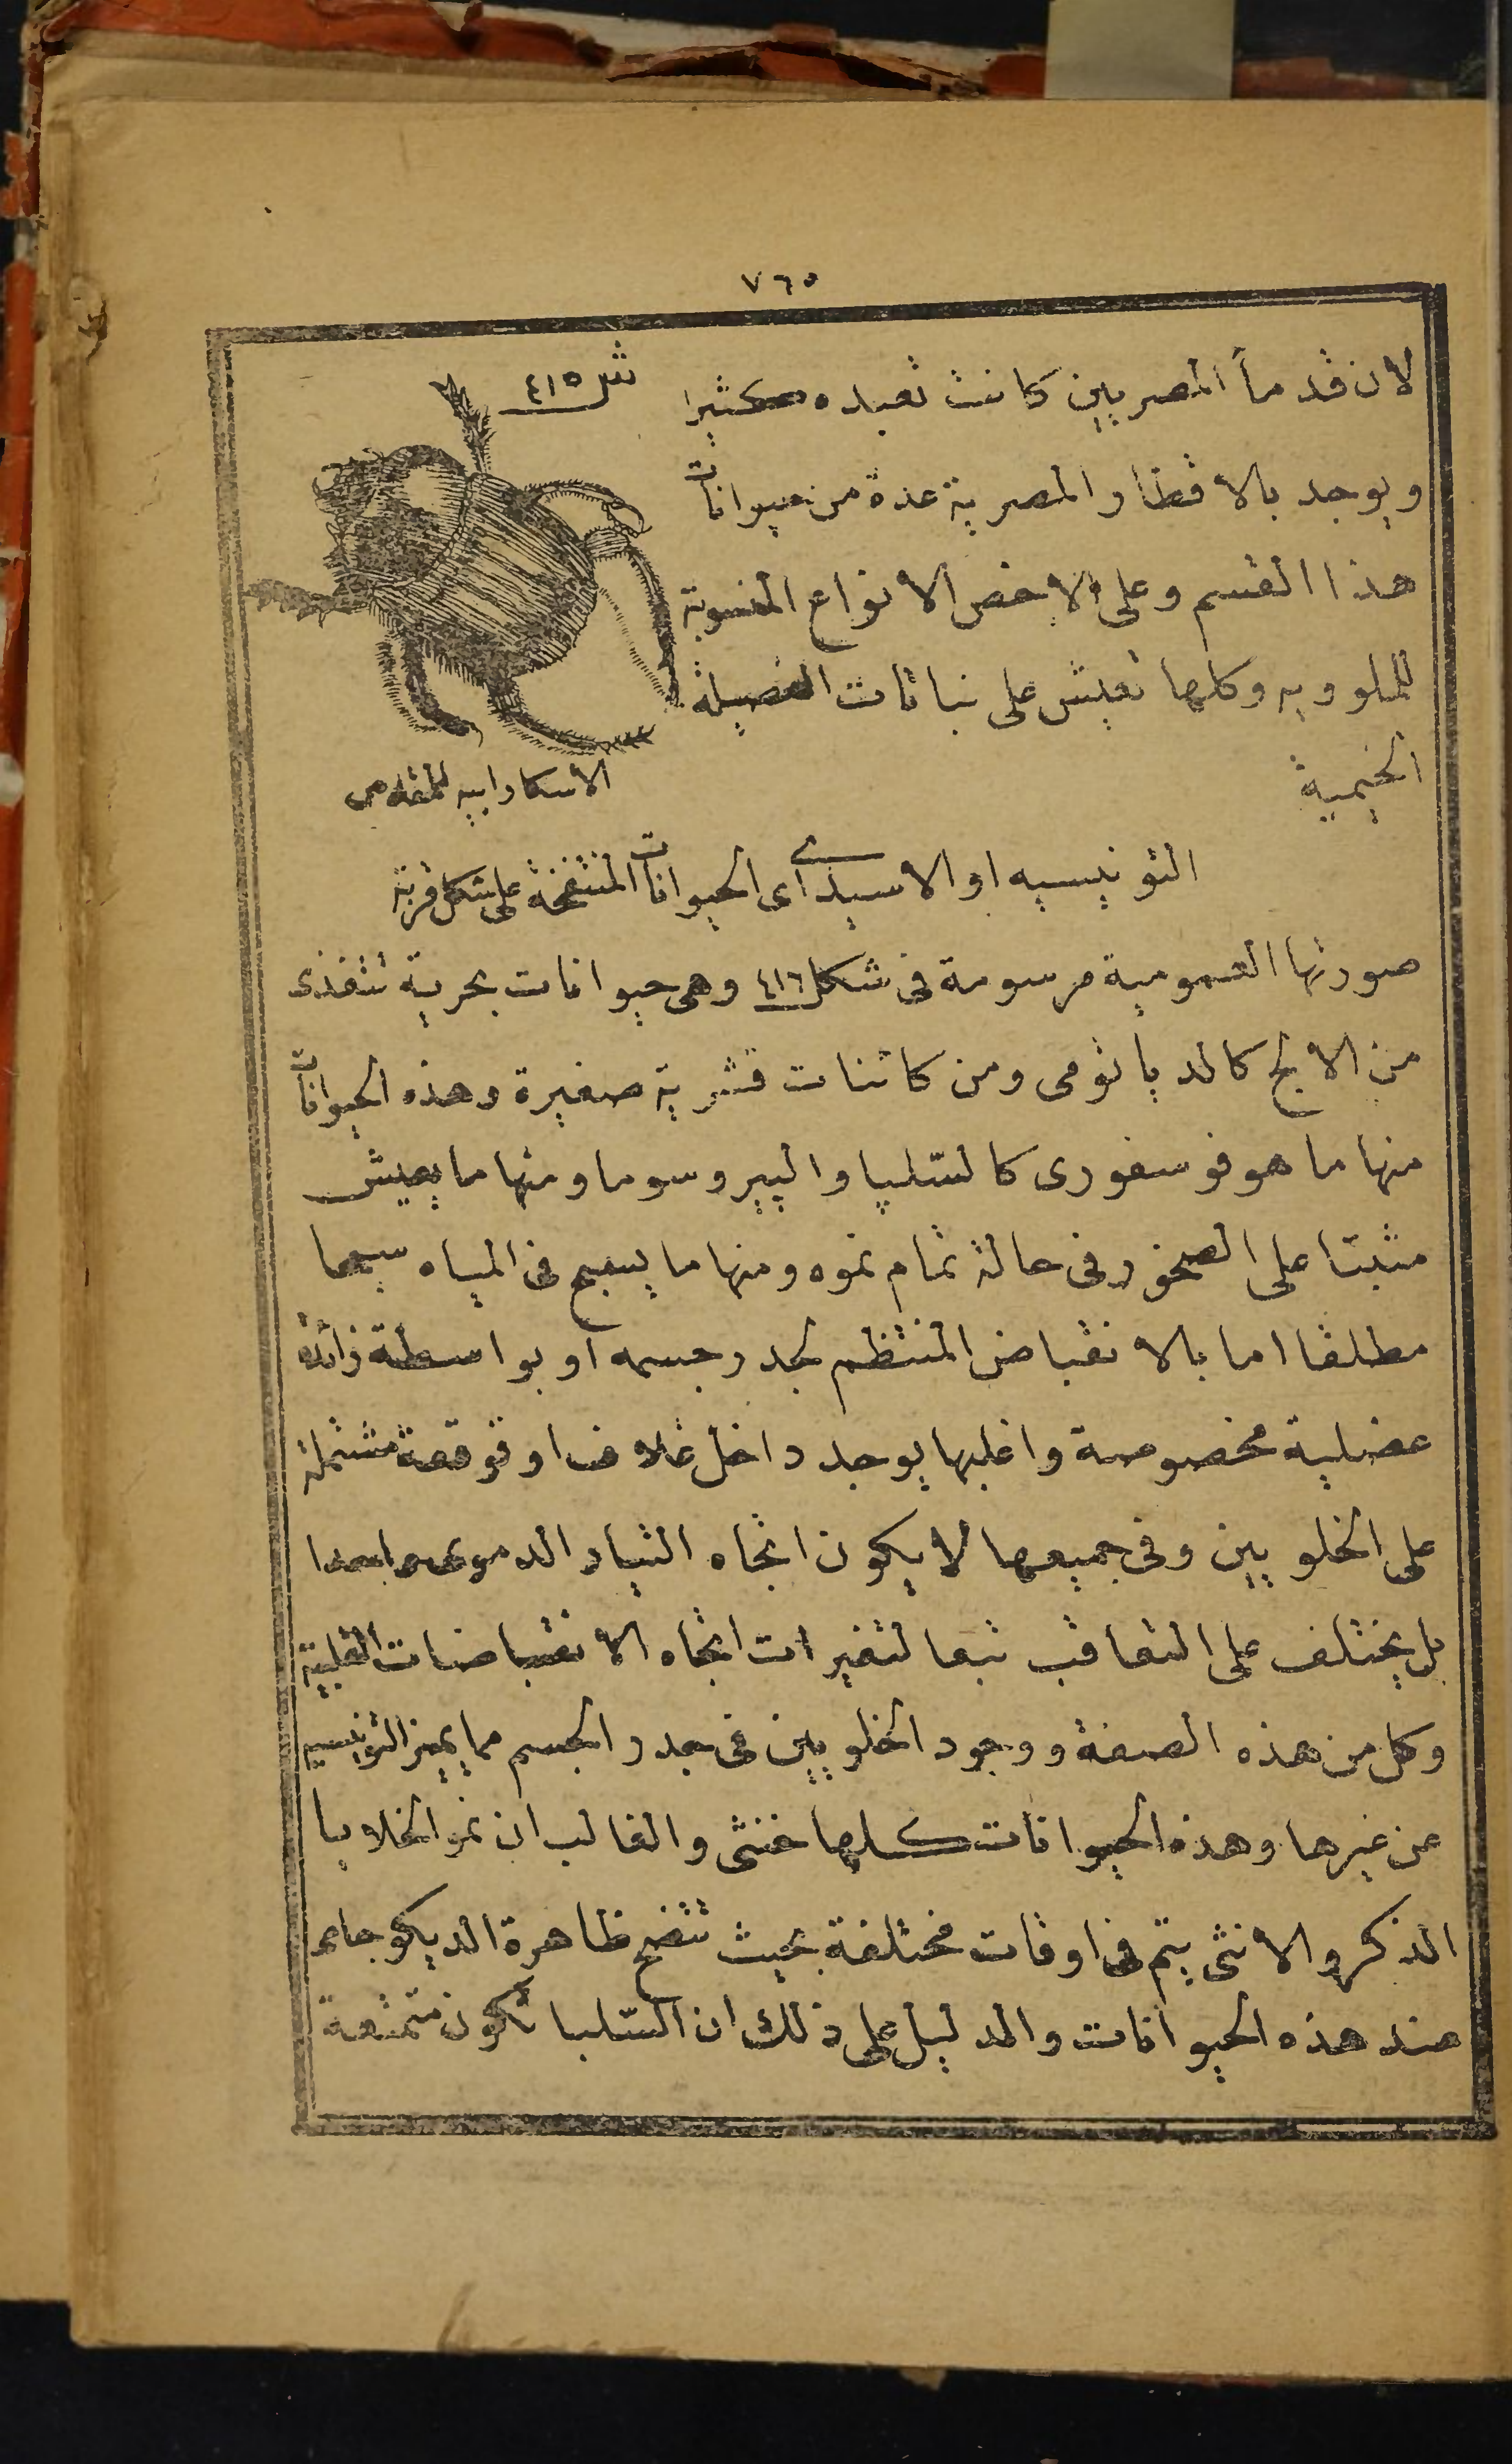 ٧٦٥
لان قدمآ المصريين كانت تعبده كثيرا
ش ٤١٥
ويوجد بالاقطار المصرية عدة من حيوانات
هذا القسم وعلى الاخص الانواع المنسوبة
للملوويه وكلها تعيش على نباتات الفصيلة
الخيمية
الاسكارابيه المقدس
التونيسيه او الاسيدى اى الحيوانات المنتفخة على شكل قربة
صورتها العمومية مرسومة فى شكل ٤١٦ وهى حيوانات بحرية تتغذى
من الابج كالدياتومى ومن كائنات قشرية صغيرة وهذه الحيوانات
منها ما هو فوسفورى كالسلپا والپيروسوما ومنها ما يعيش
مثبتا على الصخور فى حالة تمام نموه ومنها ما يسبح فى المياه سبحا
مطلقا اما بالانقباض المنتظم لجدر جسمه او بواسطة زائدة
عضلية مخصوصة واغلبها يوجد داخل غلاف او قوقعة مشتملة
على الخلويين وفى جميعها لا يكون اتجاه التيار الدموى واحدا
بل يختلف على التعاقب تبعا لتغيرات اتجاه الانقباضات القلبية
وكل من هذه الصفة ووجود الخلويين فى جدر الجسم مما يميز التونيسيه
عن غيرها وهذه الحيوانات كلها خنثى والغالب ان نمو الخلايا
الذكر والانثى يتم فى اوقات مختلفة بحيث تتضح ظاهرة الديكوجامى
عند هذه الحيوانات والدليل على ذلك ان السلبا تكون متمتعة